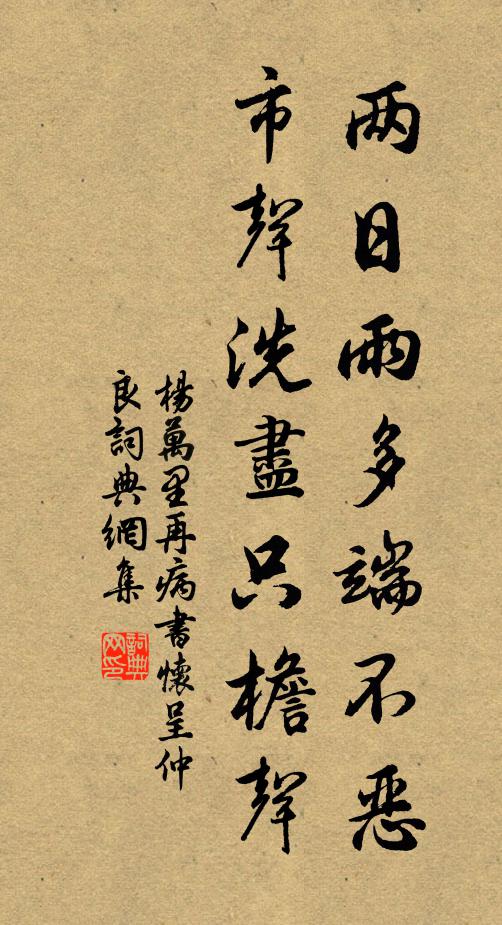 两日雨多端不恶
市聲洗盡只檐聲
楊萬里再病書懷呈仲
良詞典網集
詞典
网印